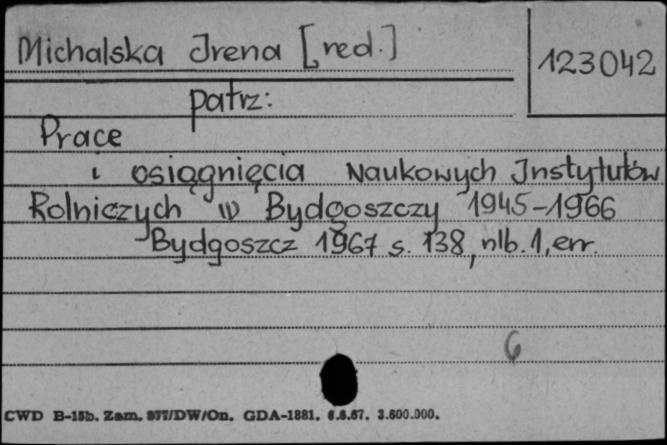 Michalska Irena [red.]
123042
patrz:
Prace
i osiągnięcia Naukowych Instytutów
Rolniczych w Bydgoszczy 1945-1966
Bydgoszcz 1967 s. 138, nlb. 1, err.
6
CWD B-15b. Zam. 977/DW/On. GDA-1881. 6.6.67. 3.600.000.